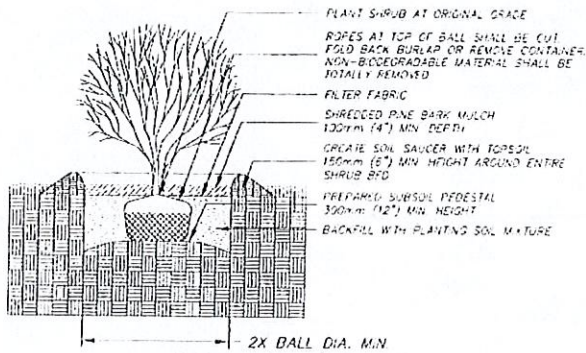 PLANT SHRUB AT ORIGINAL GRADE
ROPES AT TOP OF BALL SHALL BE CUT.
FOLD BACK BURLAP OR REMOVE CONTAINER.
NON-BIODEGRADABLE MATERIAL SHALL BE
TOTALLY REMOVED
FILTER FABRIC
SHREDDED PINE BARK MULCH
100mm (4") MIN. DEPTH
CREATE SOIL SAUCER WITH TOPSOIL
150mm (6") MIN. HEIGHT AROUND ENTIRE
SHRUB BED
PREPARED SUBSOIL PEDESTAL
300mm (12") MIN. HEIGHT
BACKFILL WITH PLANTING SOIL MIXTURE
2X BALL DIA. MIN.